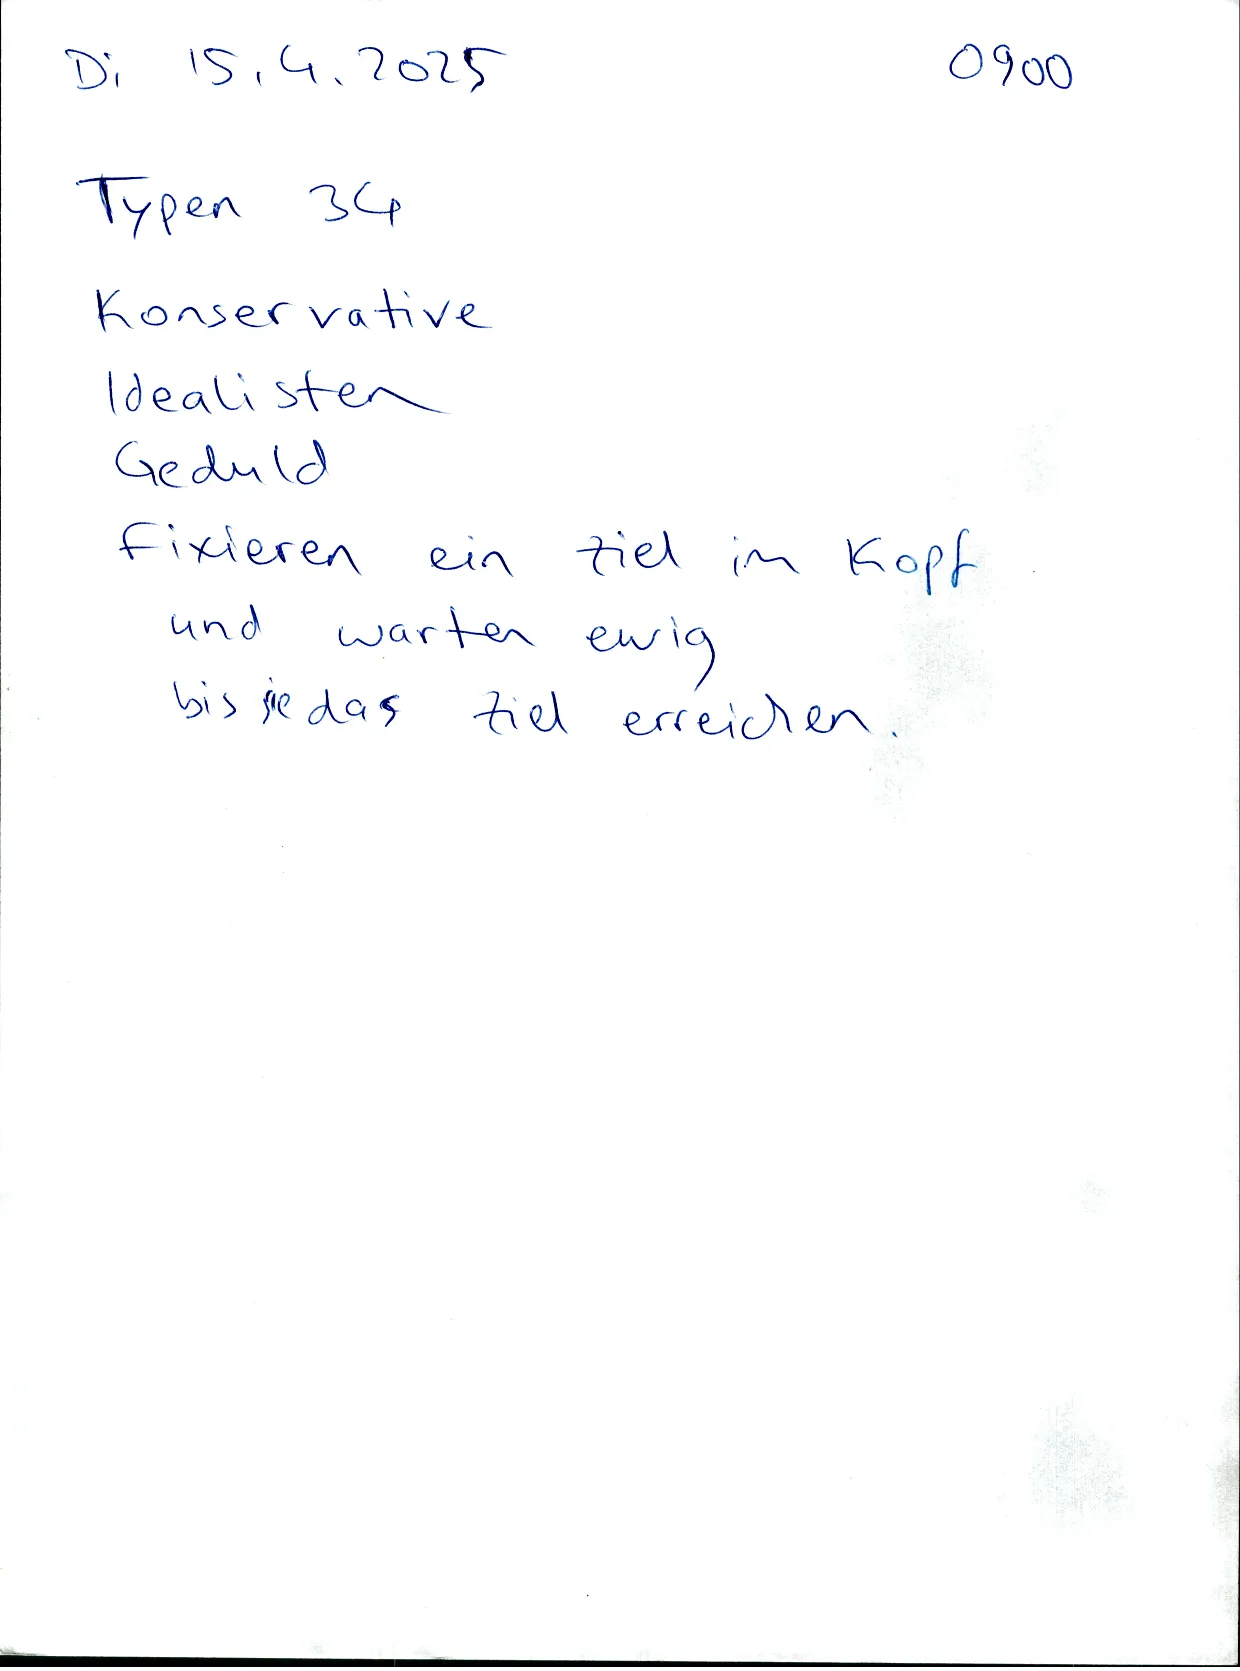 Di 15.4.2025 0900
Typen 34
Konservative
Idealisten
Geduld
Fixieren ein Ziel im Kopf
und warten ewig
bis sie das Ziel erreichen.